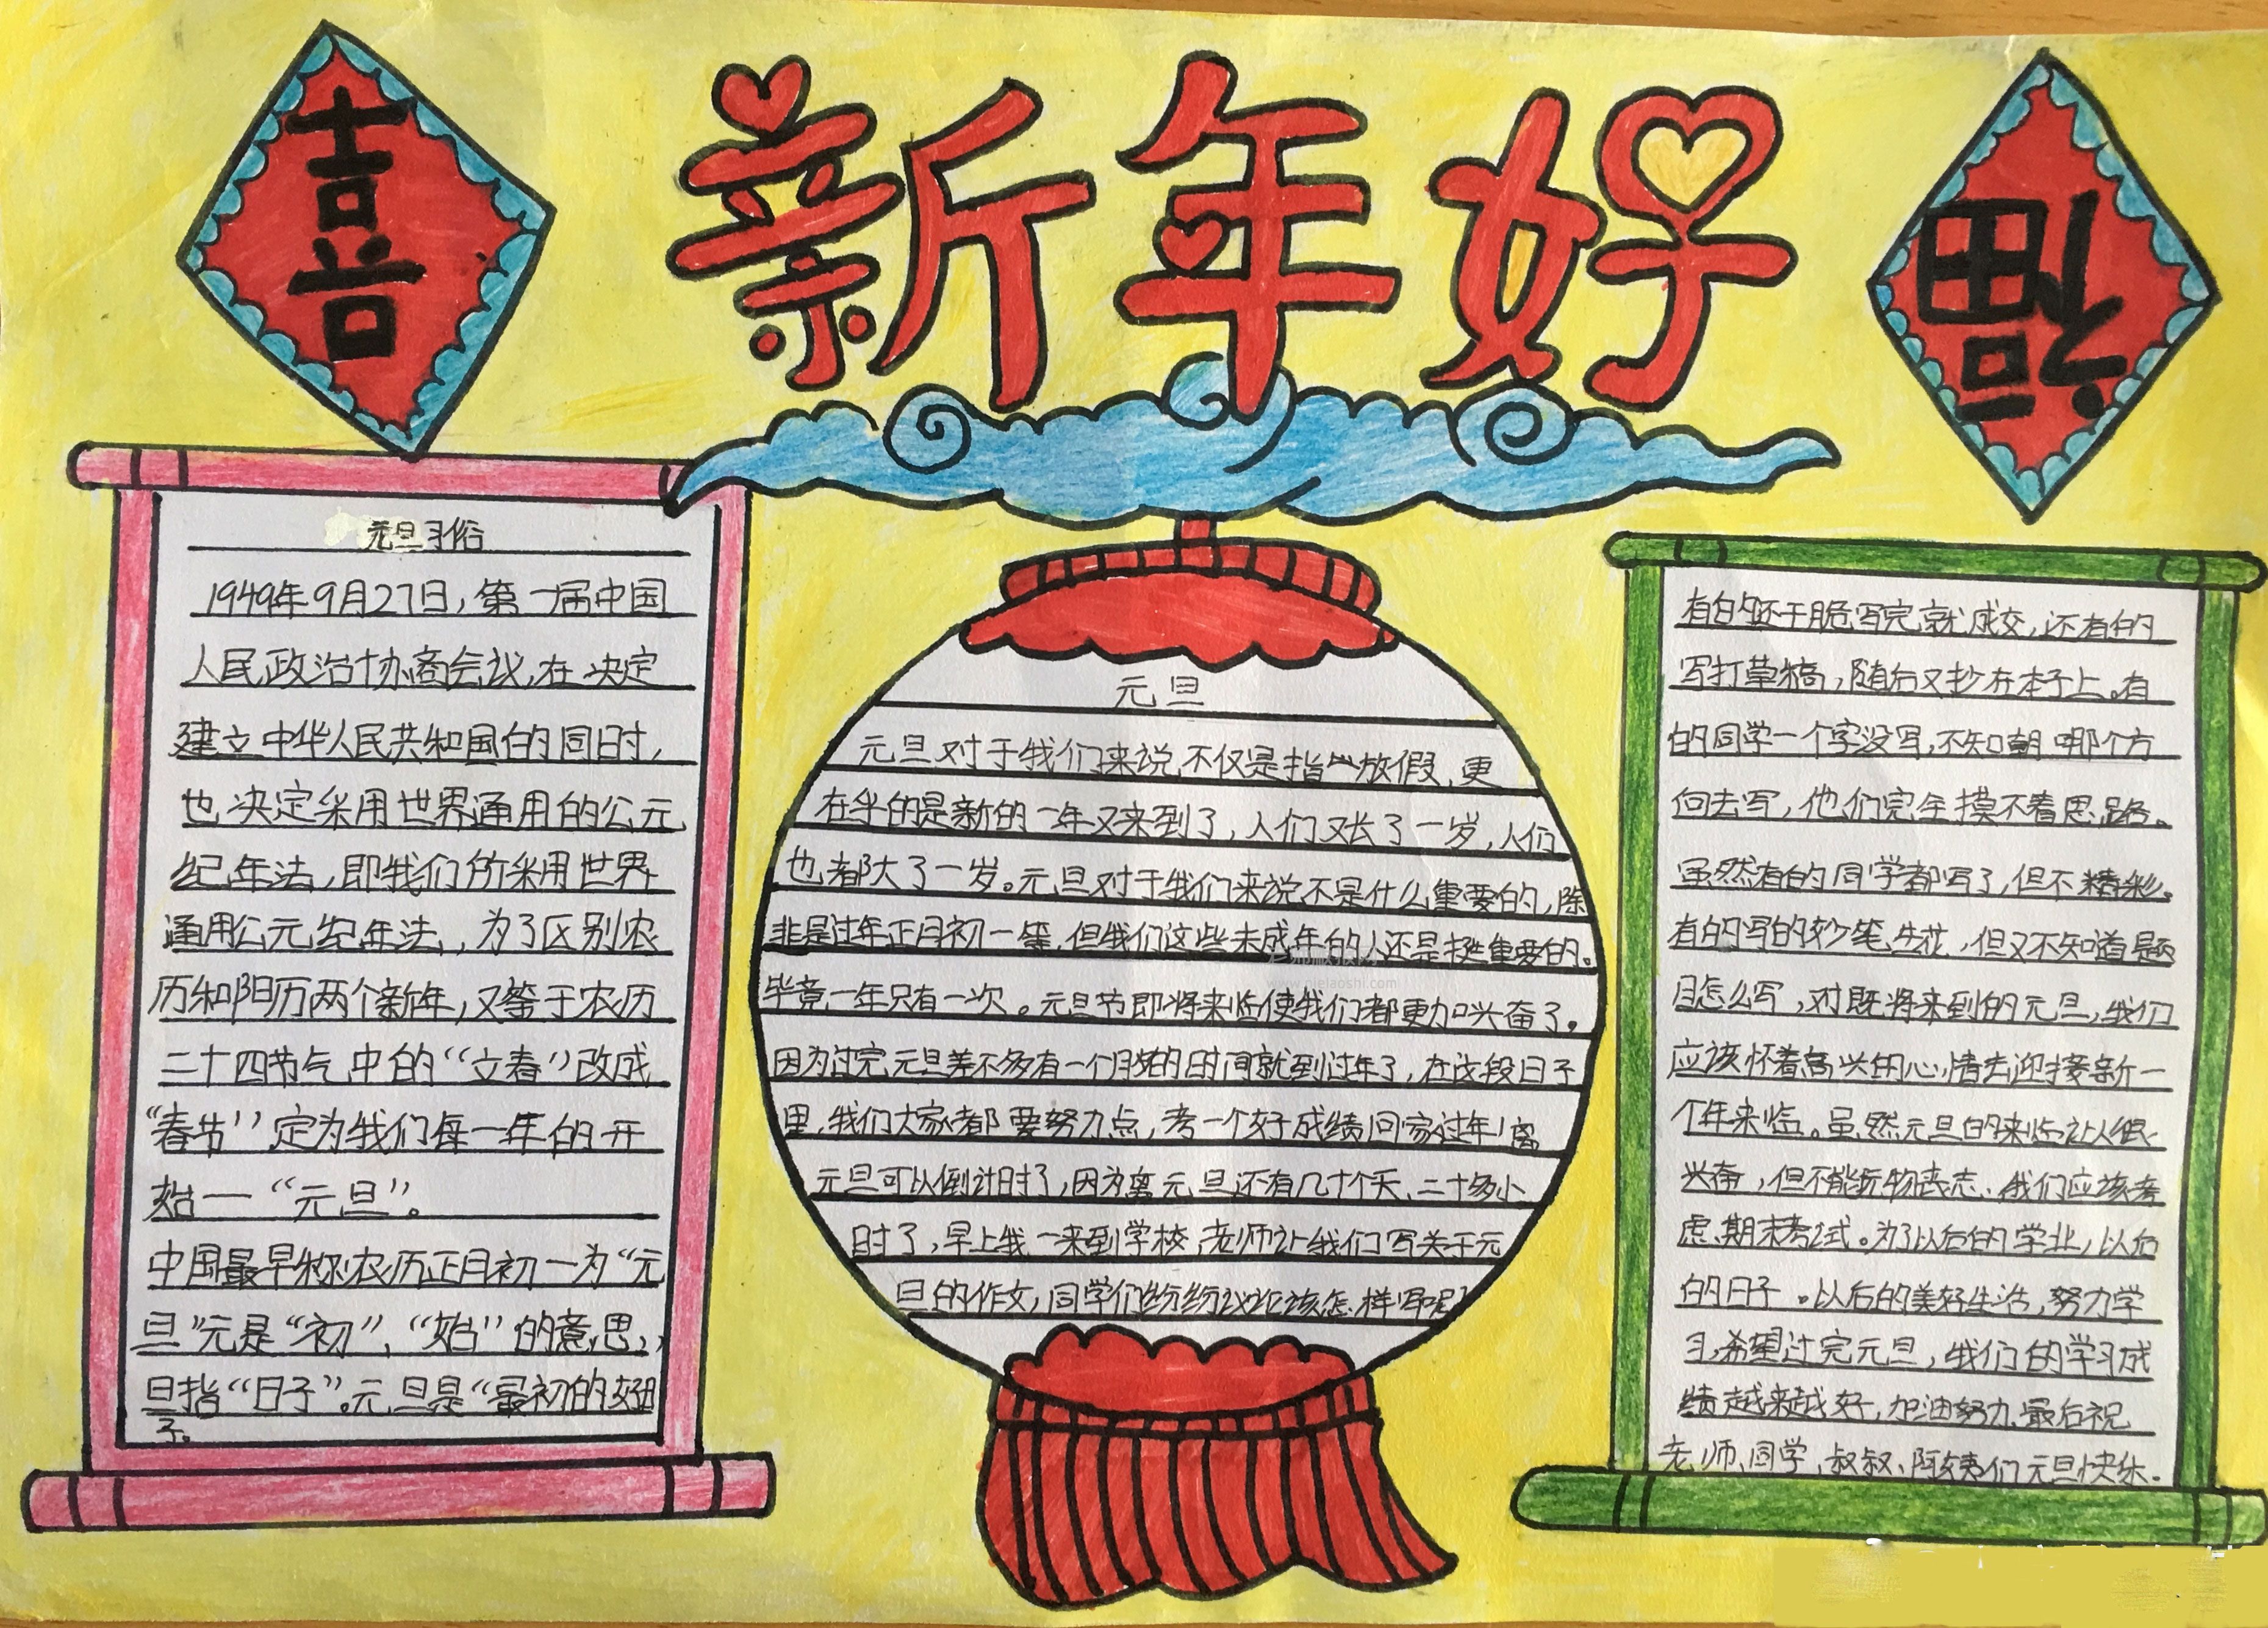 喜
新年好
福
元旦习俗
1949年9月27日,第一届中国
人民政治协商会议,在决定
建立中华人民共和国的同时,
也决定采用世界通用的公元
纪年法,即我们所采用世界
通用公元纪年法,为了区别农
历和阳历两个新年,又等于农历
二十四节气中的“立春”改成
“春节”定为我们每一年的开
始一“元旦”。
中国最早称农历正月初一为“元
旦”元是“初”、“始”的意思,
旦指“日子”。元旦是“最初的好日
子。
元旦
元旦对于我们来说不仅是指放假,更
在乎的是新的一年又来到了,人们又长了一岁,人们
也都大了一岁。元旦对于我们来说不是什么重要的,除
非是过年正月初一等,但我们这些未成年的人还是挺重要的。
毕竟一年只有一次。元旦节即将来临使我们都更加兴奋了。
因为过完元旦差不多有一个月的时间就到过年了,在这段日子
里,我们大家都要努力点,考一个好成绩回家过年!离
元旦可以倒计时了,因为离元旦还有几十个天、二十多小
时了,早上我一来到学校老师让我们写关于元
旦的作文,同学们纷纷议论该怎样写呢?
www.pielaoshi.com
有的还干脆写完就成交,还有的
写打草稿,随后又抄在本子上。有
的同学一个字没写,不知朝哪个方
向去写,他们完全摸不着思路。
虽然有的同学都写了,但不精彩。
有的写的妙笔生花,但又不知道题
目怎么写,对既将来到的元旦,我们
应该怀着高兴的心情去迎接新一
个年来临。虽然元旦的来临让人很
兴奋,但不能玩物丧志、我们应该考
虑期末考试。为了以后的学业,以后
的日子。以后的美好生活,努力学
习,希望过完元旦,我们的学习成
绩越来越好,加油努力,最后祝
老师、同学、叔叔、阿姨们元旦快乐。